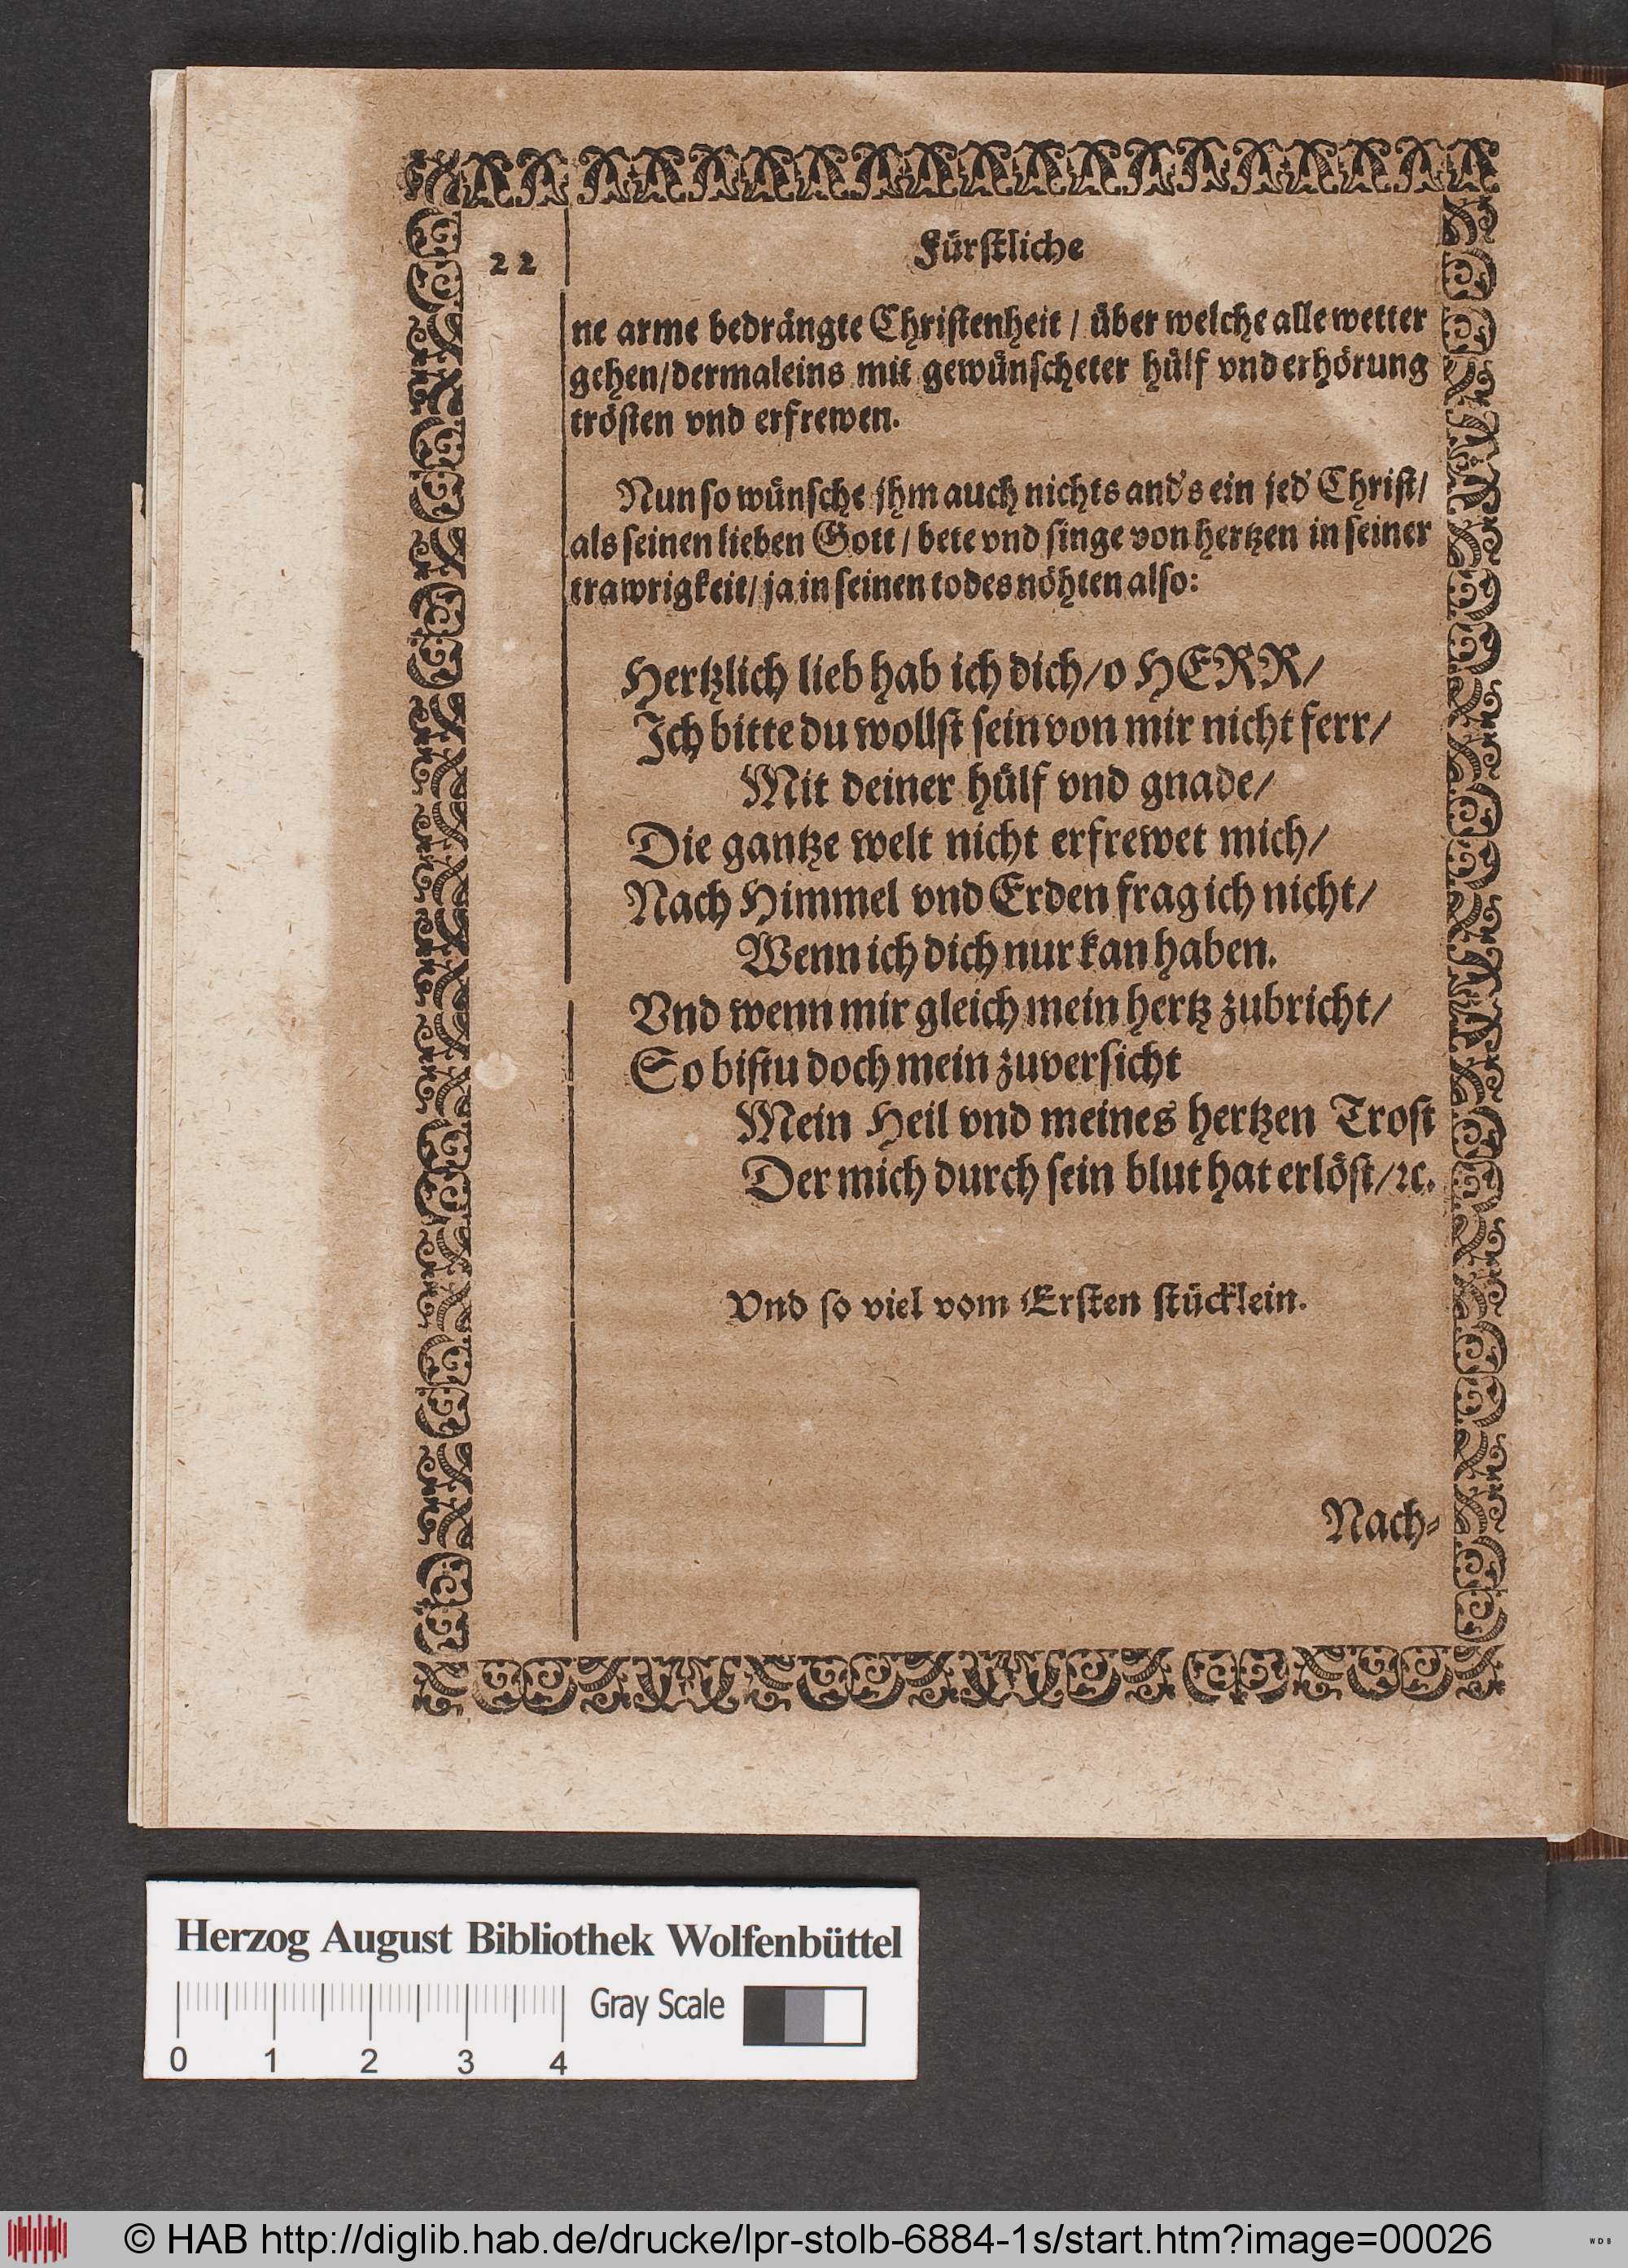 22
Fürstliche
ne arme bedrängte Christenheit / über welche alle wetter
gehen/dermaleins mit gewünscheter hülf vnd erhörung
trösten vnd erfrewen.
Nun so wünsche jhm auch nichts and's ein jed' Christ/
als seinen lieben Gott / bete vnd singe von hertzen in seiner
trawrigkeit/ ja in seinen todesnöhten also:
Hertzlich lieb hab ich dich/o HERR/
Ich bitte du wollst sein von mir nicht ferr/
Mit deiner hülf vnd gnade/
Die gantze welt nicht erfrewet mich/
Nach Himmel vnd Erden frag ich nicht/
Wenn ich dich nur kan haben.
Vnd wenn mir gleich mein hertz zubricht/
So bistu doch mein zuversicht
Mein Heil vnd meines hertzen Trost
Der mich durch sein blut hat erlöst/ꝛc.
Vnd so viel vom Ersten stücklein.
Nach-
Herzog August Bibliothek Wolfenbüttel
Gray Scale
0 1 2 3 4
© HAB http://diglib.hab.de/drucke/lpr-stolb-6884-1s/start.htm?image=00026
WDB